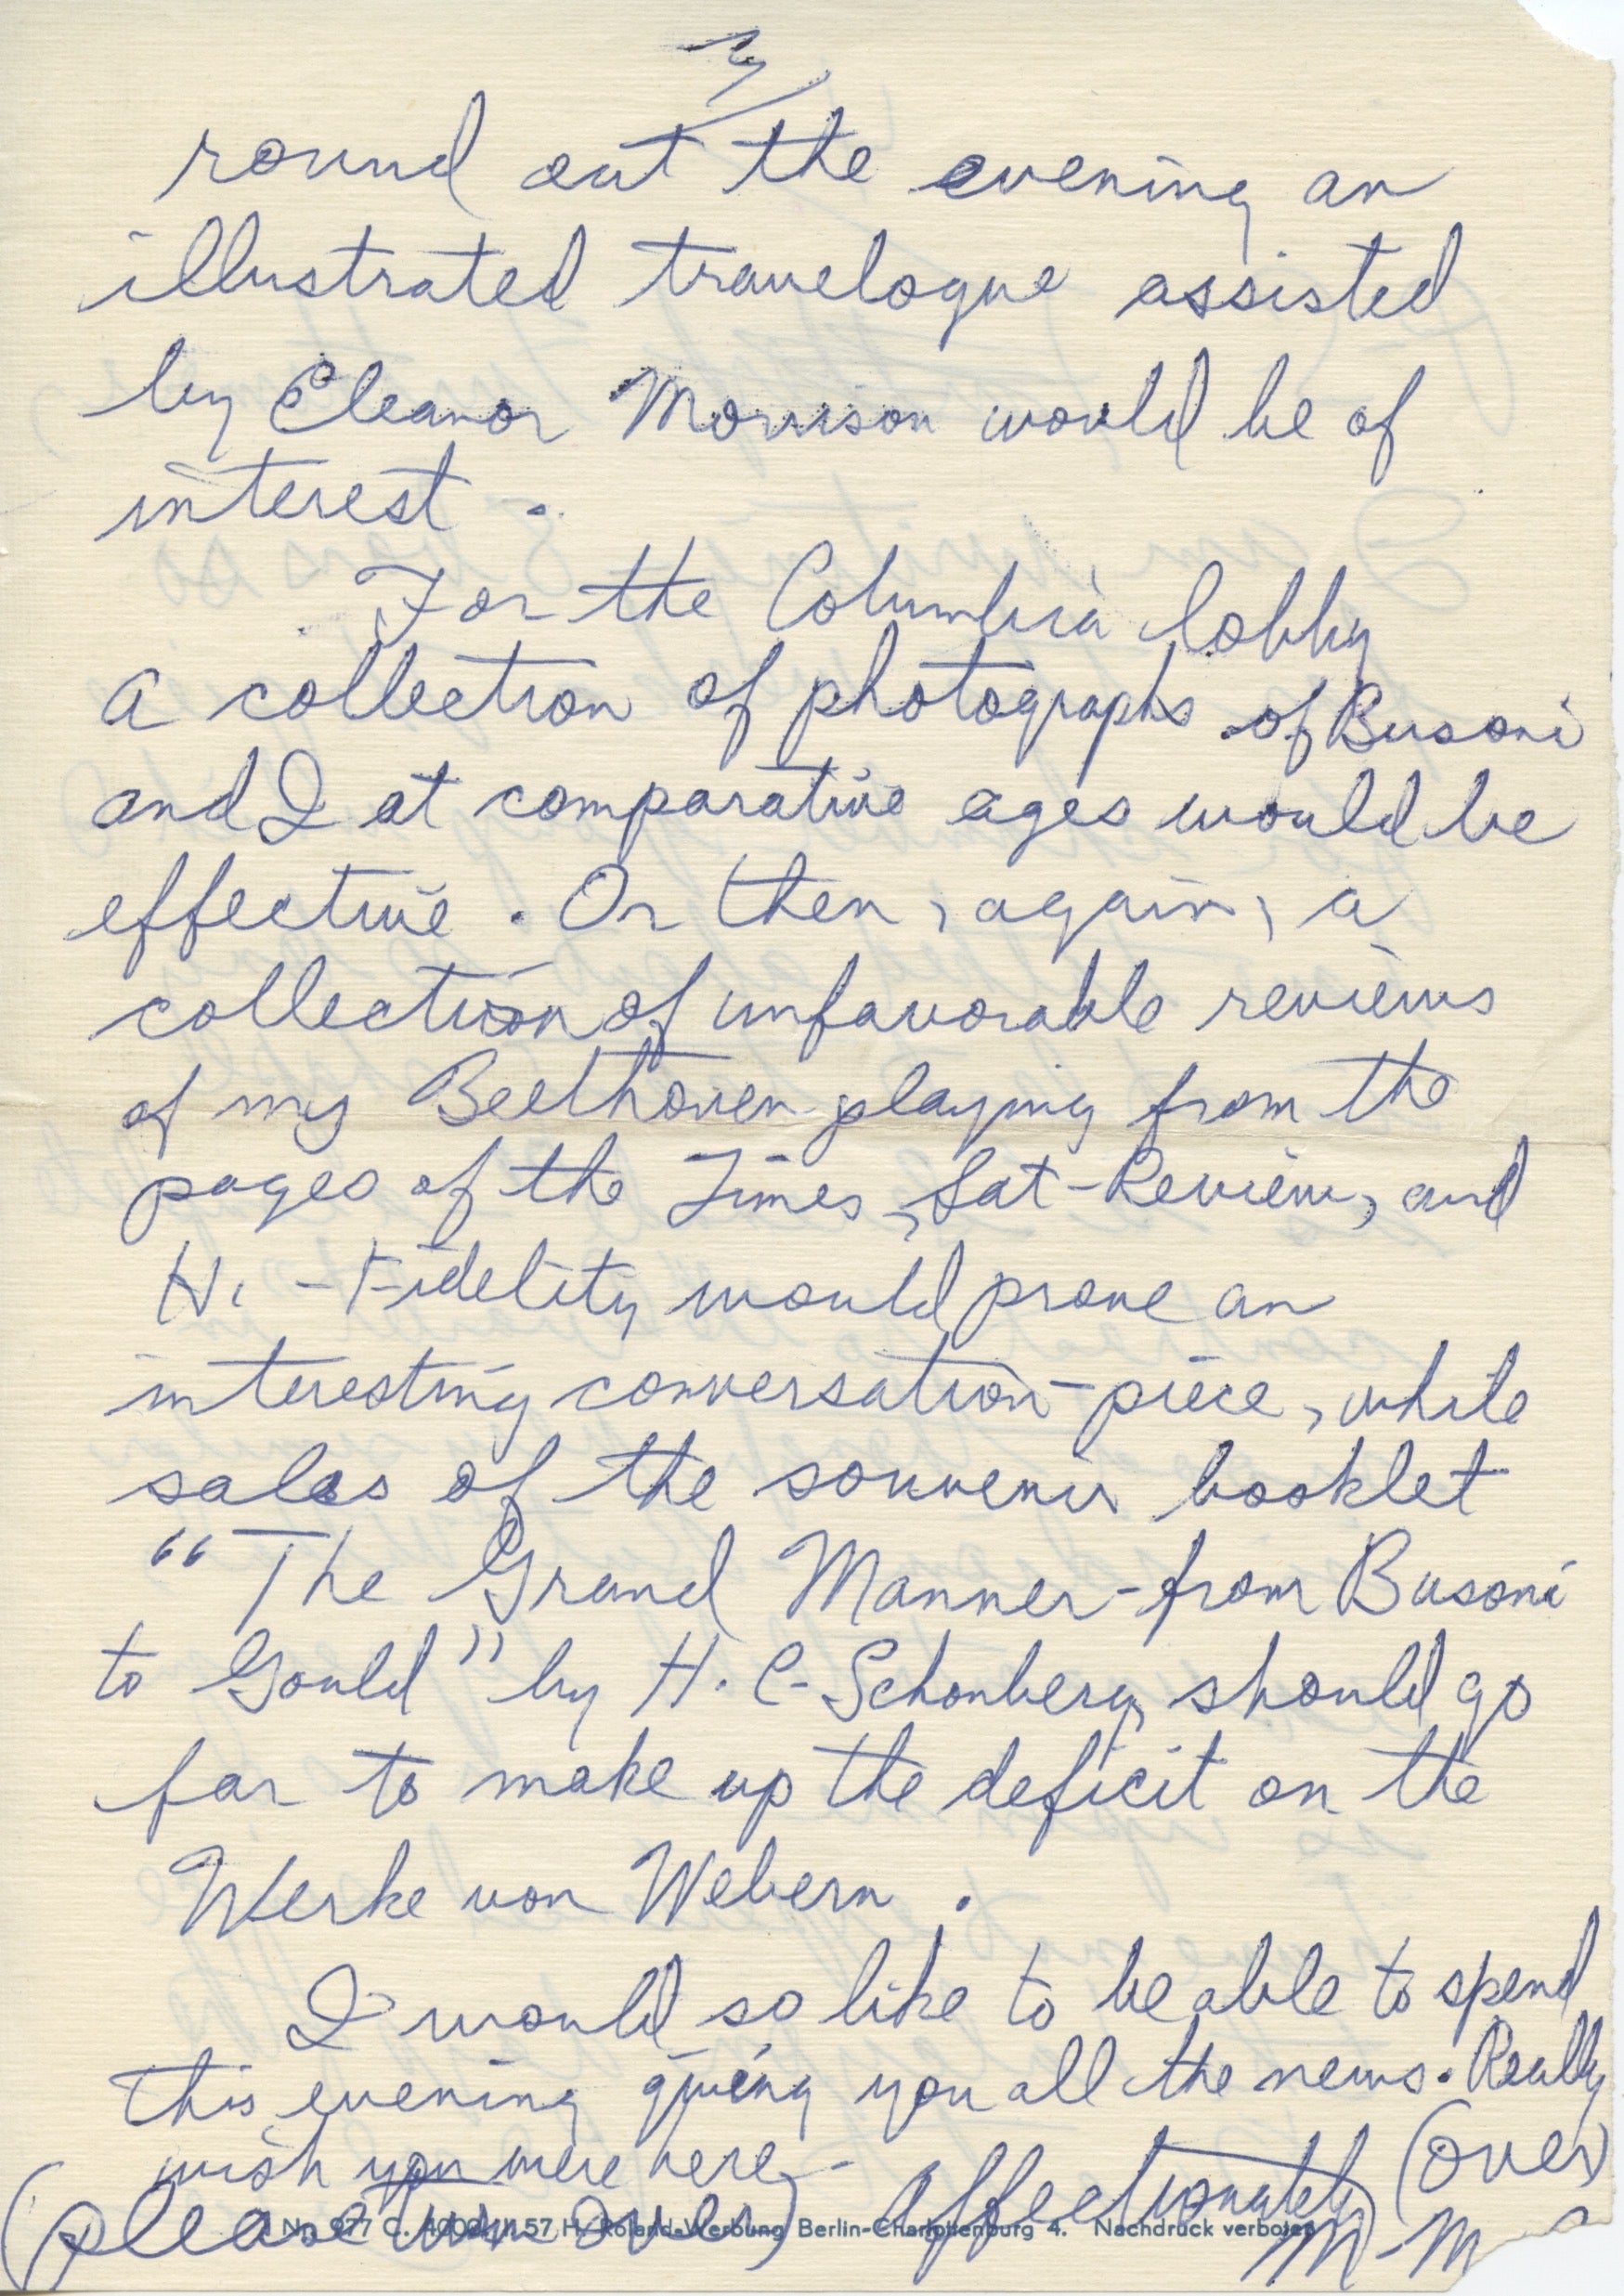 3/
round out the evening an
illustrated travelogue assisted
by Eleanor Morrison would be of
interest.
For the Columbia lobby
a collection of photographs of Busoni
and I at comparative ages would be
effective. Or then, again, a
collection of unfavorable reviews
of my Beethoven playing from the
pages of the Times, Sat-Review, and
Hi-Fidelity would prove an
interesting conversation-piece, while
sales of the souvenir booklet
"The Grand Manner - from Busoni
to Gould" by H. C. Schonberg, should go
far to make up the deficit on the
Werke von Webern.
I would so like to be able to spend
this evening giving you all the news. Really
wish you were here - (over)
Affectionately
M-M
(please turn over)
No. 977 C. 57 H/Roland-Werbung Berlin-Charlottenburg 4. Nachdruck verboten